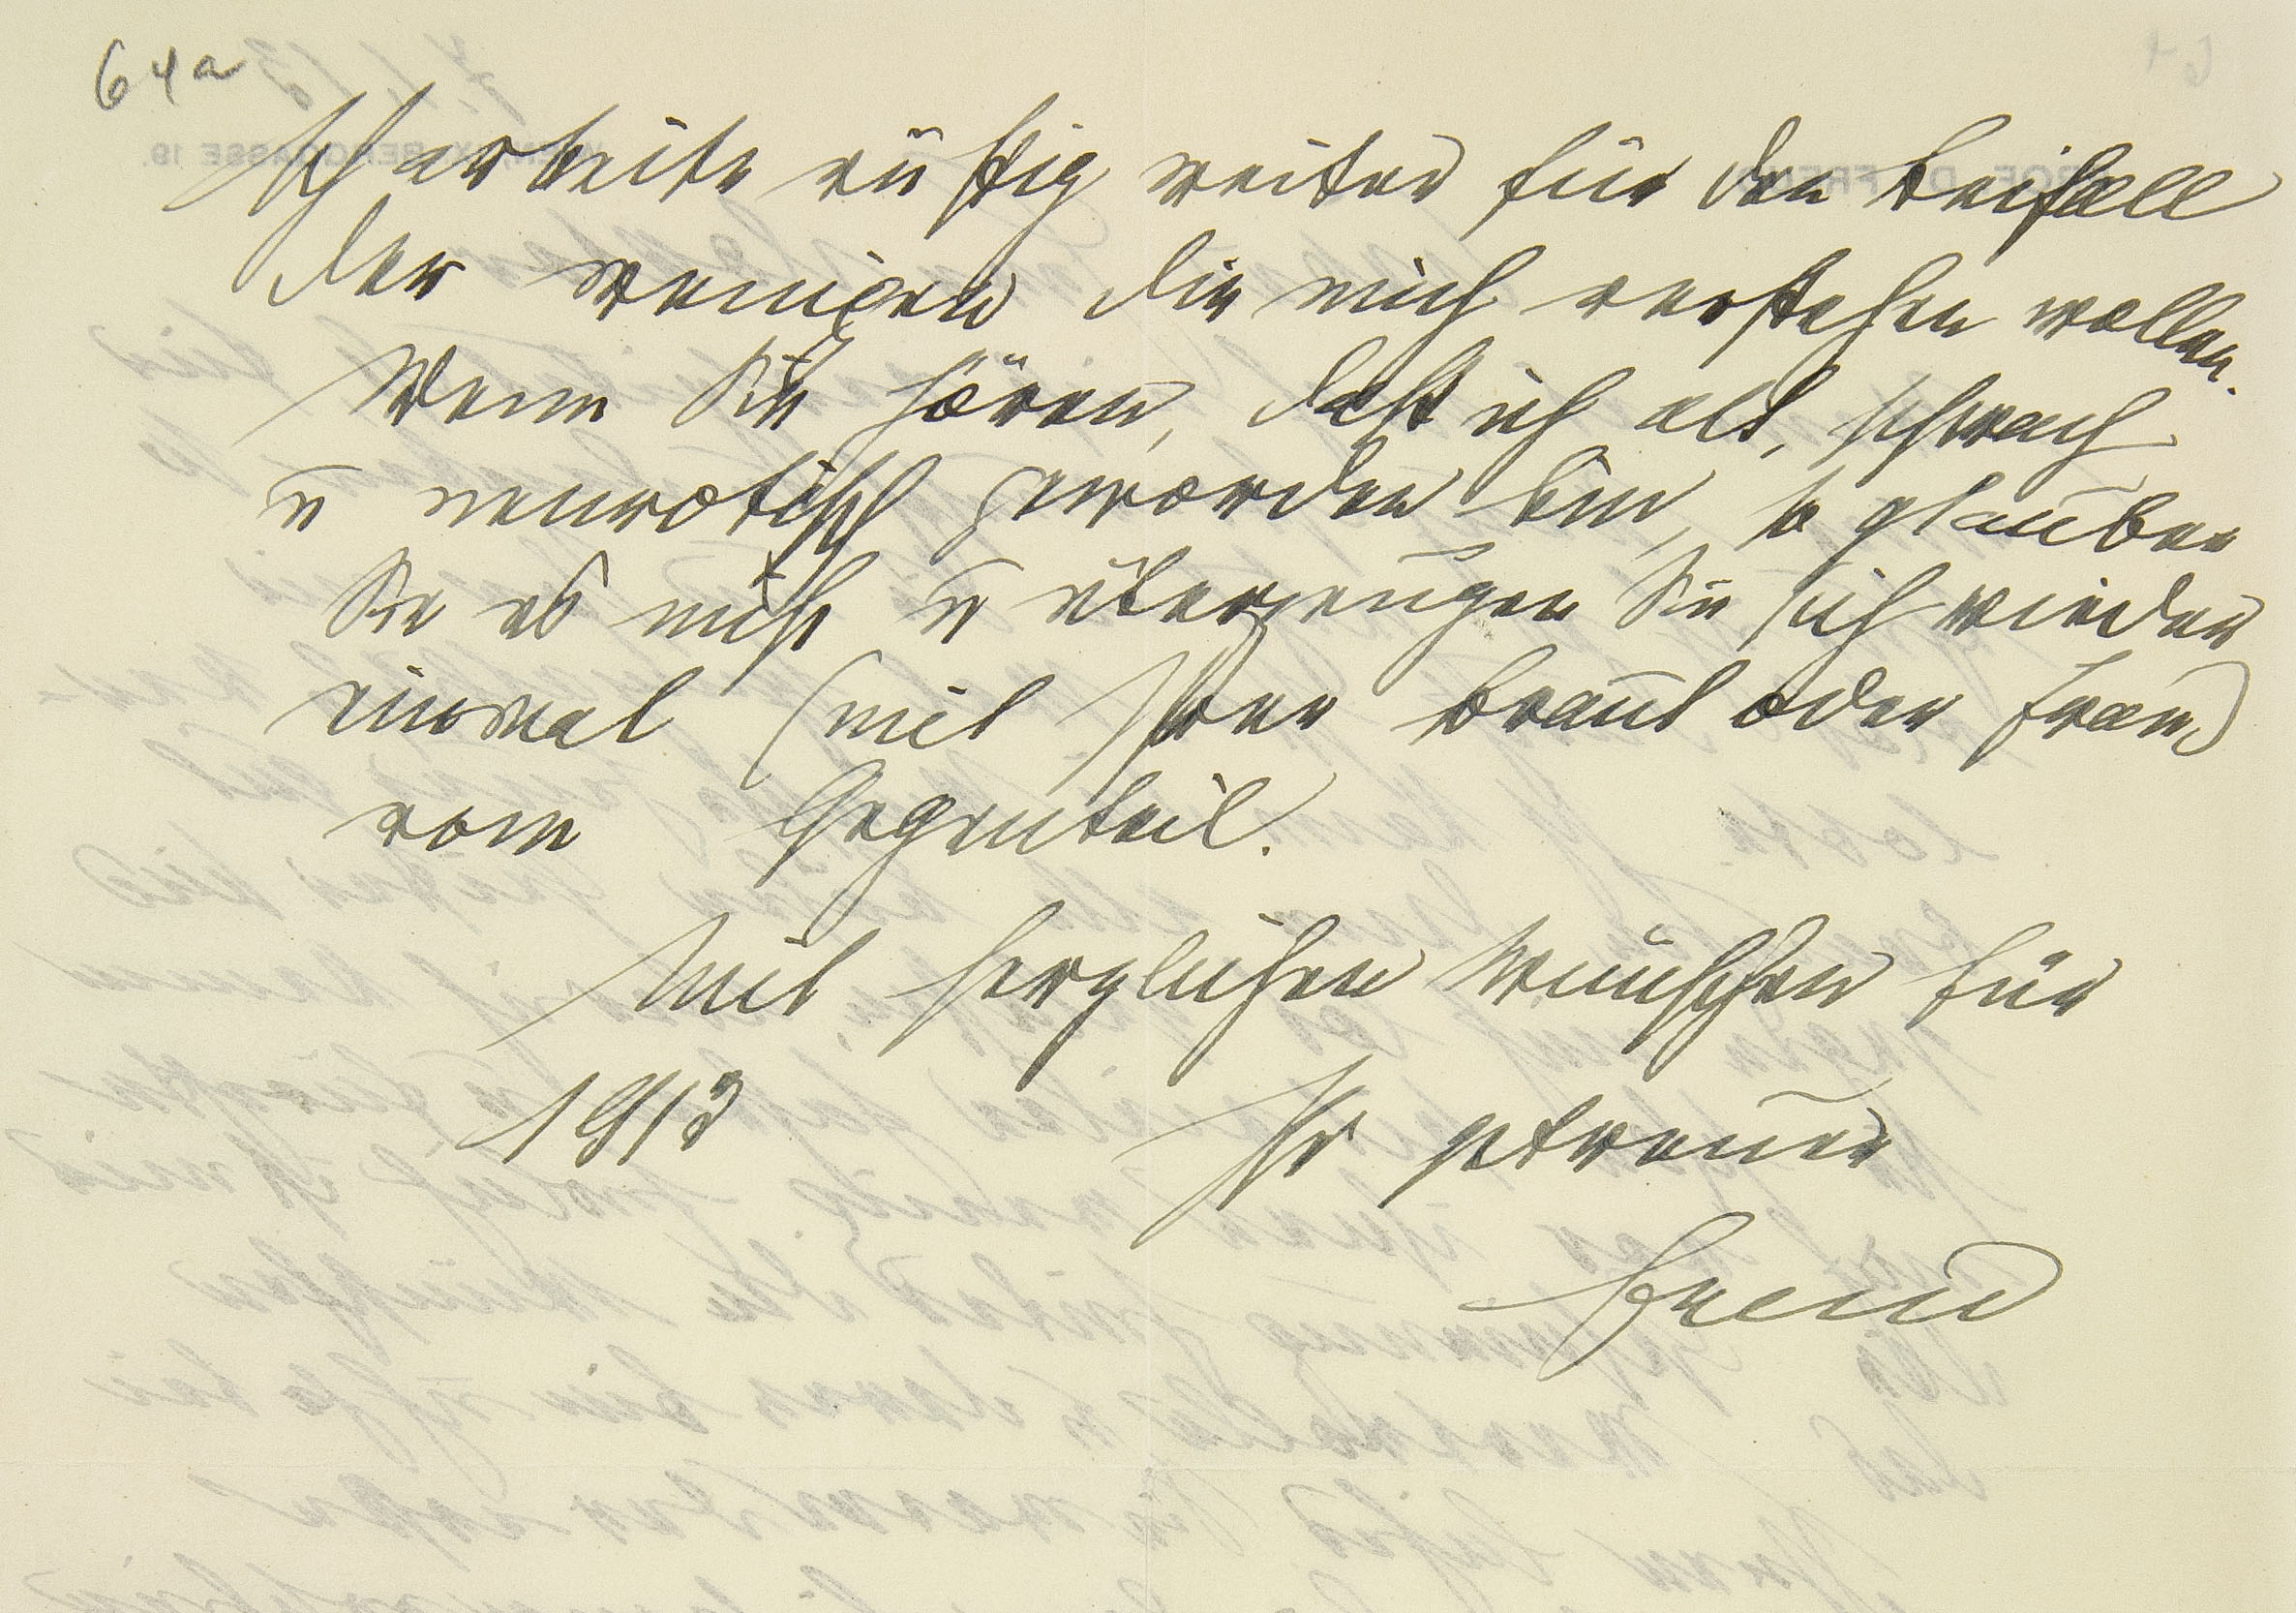 64a
Ich arbeite rüstig weiter für den Beifall
der wenigen die mich verstehen wollen.
Wenn Sie hören, daß ich alt, schwach
u neurotisch geworden bin, so glauben
Sie es nicht u überzeugen Sie sich wieder
einmal (mit Ihrer Braut oder Frau)
vom Gegenteil.
Mit herzlichen Wünschen für
1913
Ihr getreuer
Freud